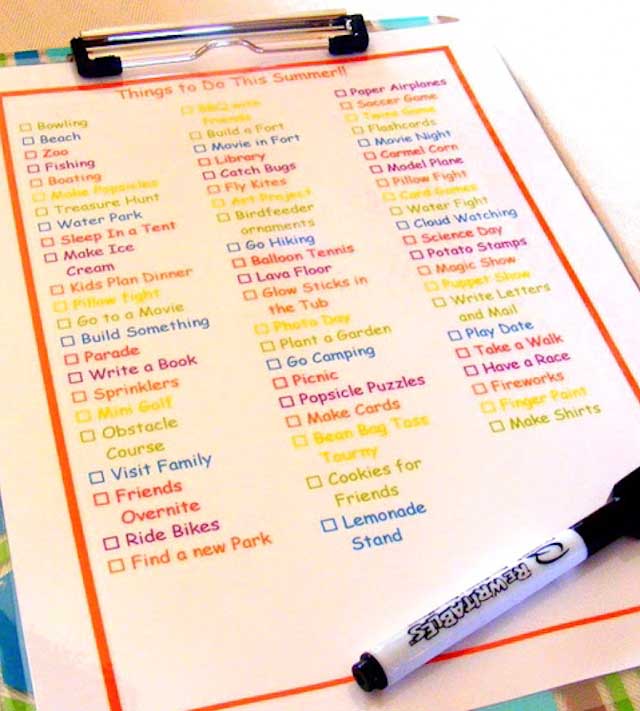 Things to Do This Summer!!
Bowling
Beach
Zoo
Fishing
Boating
Make Popsicles
Treasure Hunt
Water Park
Sleep In a Tent
Make Ice
Cream
Kids Plan Dinner
Pillow Fight
Go to a Movie
Build Something
Parade
Write a Book
Sprinklers
Mini Golf
Obstacle
Course
Visit Family
Friends
Overnite
Ride Bikes
Find a new Park
BBQ with
Friends
Build a Fort
Movie in Fort
Library
Catch Bugs
Fly Kites
Art Project
Birdfeeder
ornaments
Go Hiking
Balloon Tennis
Lava Floor
Glow Sticks in
the Tub
Photo Day
Plant a Garden
Go Camping
Picnic
Popsicle Puzzles
Make Cards
Bean Bag Toss
Tourny
Cookies for
Friends
Lemonade
Stand
Paper Airplanes
Soccer Game
Twins Game
Flashcards
Movie Night
Carmel Corn
Model Plane
Pillow Fight
Card Games
Water Fight
Cloud Watching
Science Day
Potato Stamps
Magic Show
Puppet Show
Write Letters
and Mail
Play Date
Take a Walk
Have a Race
Fireworks
Finger Paint
Make Shirts
REWRITABLES